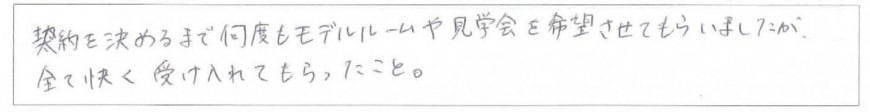 契約を決めるまで何度もモデルルームや見学会を希望させてもらいましたが、
全て快く受け入れてもらったこと。